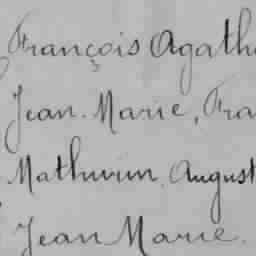 François Agath
Jean. Marie, Fra
Mathurin. August
Jean Marie.